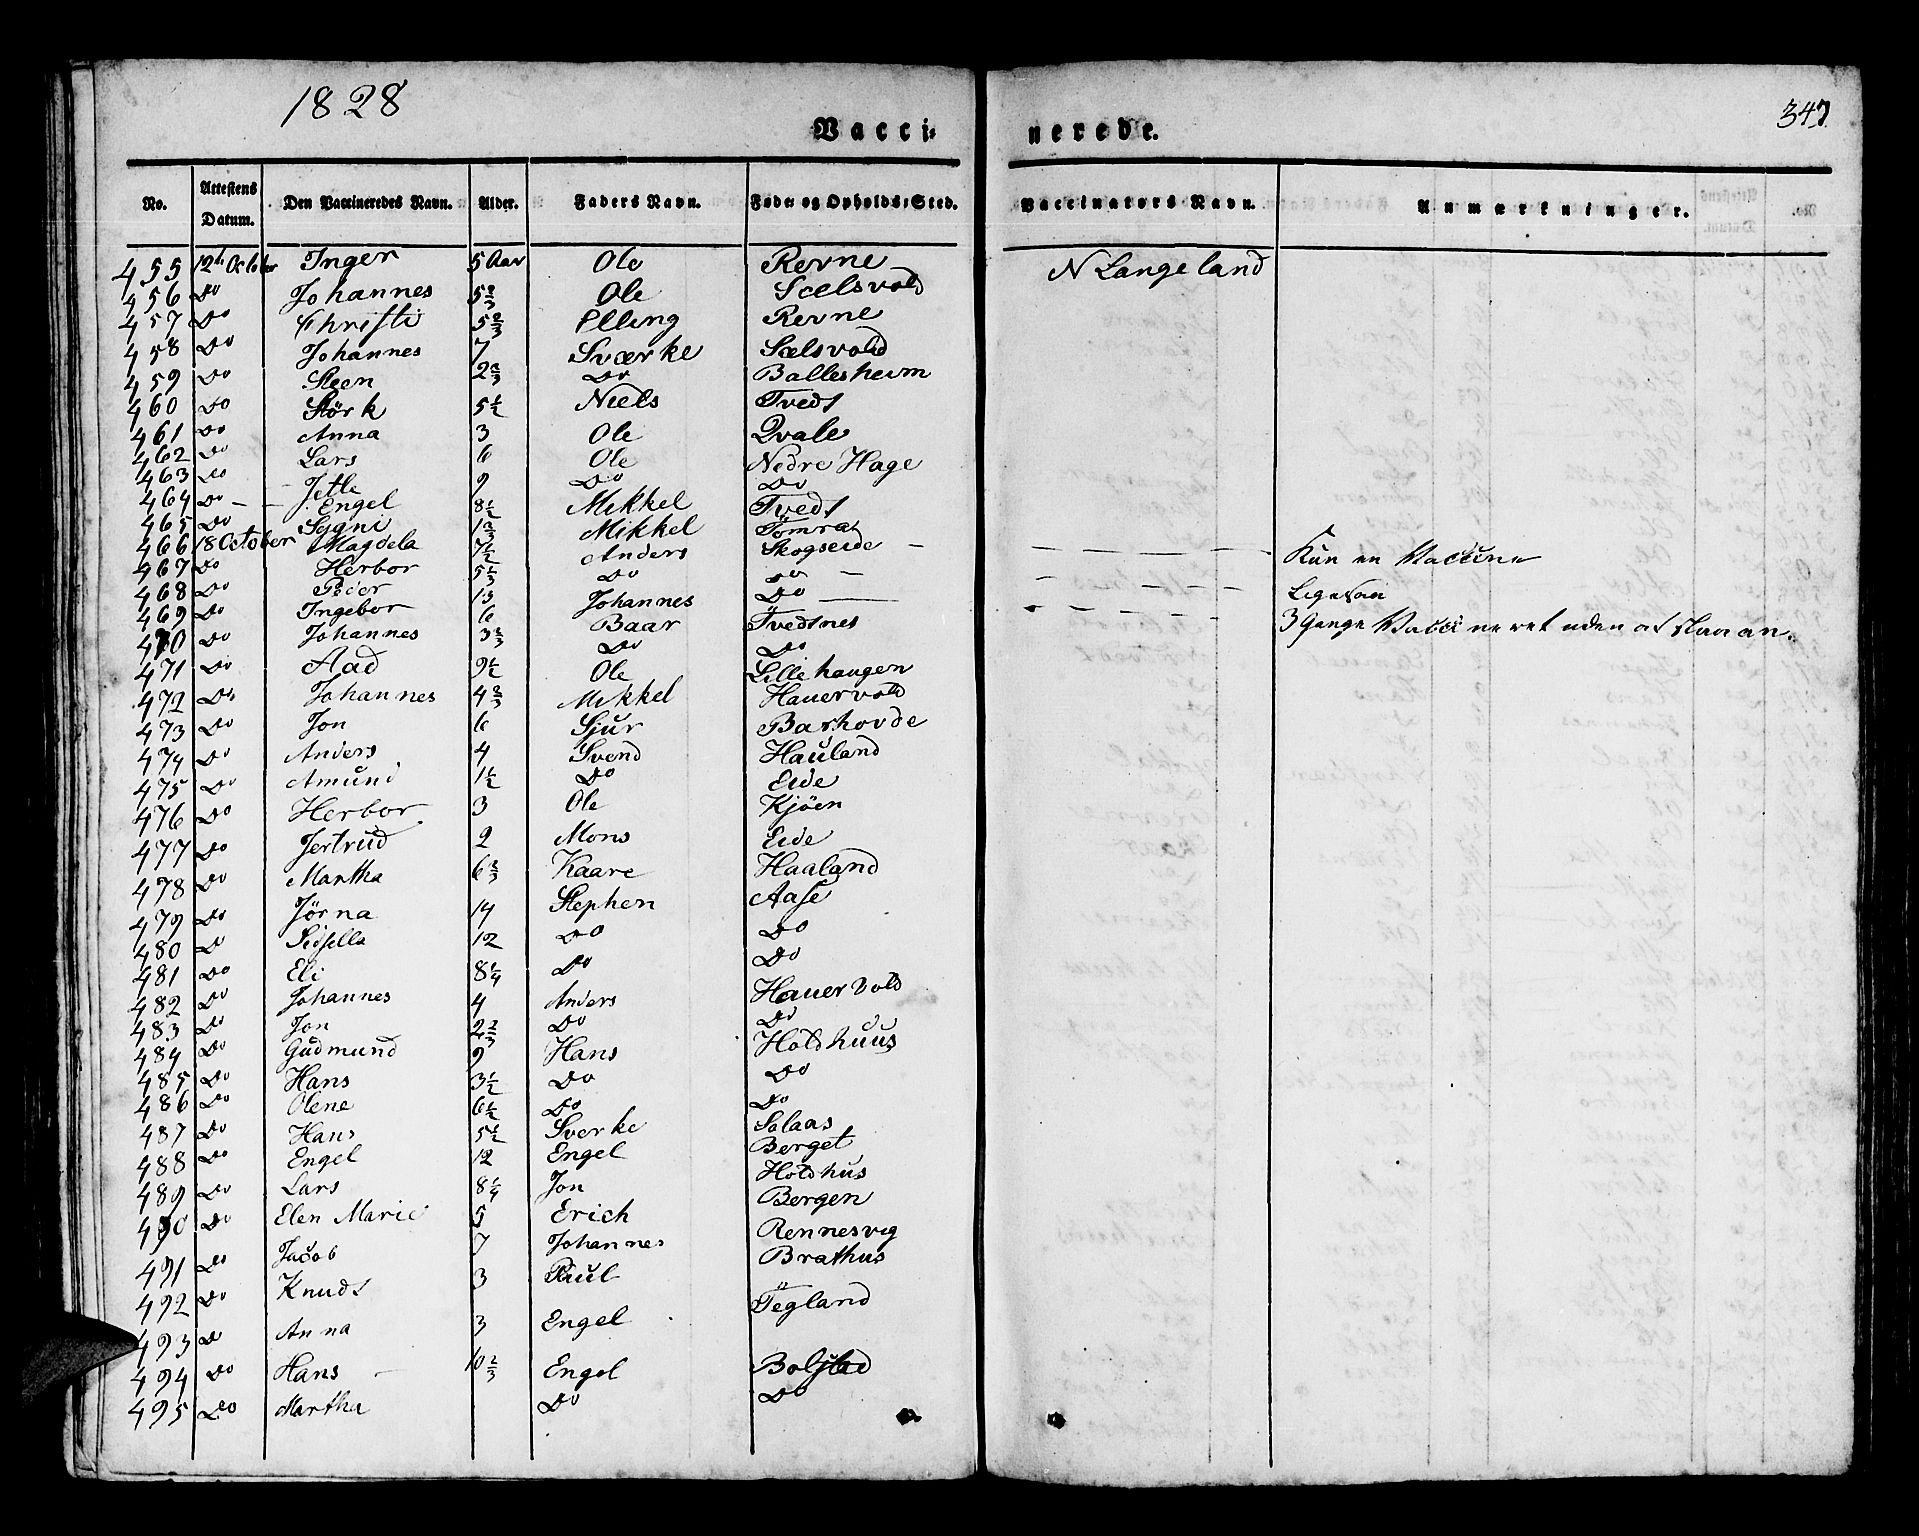 1828
347.
Vacci=
nerede.
No. Attestens Datum. Den Vaccineredes Navn. Alder. Faders Navn. Føde= og Opholds=Sted. Vaccinators Navn. Anmærkninger.
455 12te October Inger 5 Aar Ole Revne N Langeland
456 Do Johannes 5 2/3 Ole Sælsvold
457 Do Christi 5 2/3 Elling Revne
458 Do Johannes 7 Sværke Sælsvold
459 Do Steen 2 2/3 Do Ballesheim
460 Do Störk 5 1/2 Niels Tvedt
461 Do Anna 3 Ole Qvale
462 Do Lars 6 Ole Nedre Hage
463 Do Jetle 9 Do Do
464 Do Engel 8 1/2 Mikkel Tvedt
465 Do Sygni 1 2/3 Mikkel Tömra
466 18 October Magdela 7 1/2 Anders Skogseide Kun en Vaccine
467 Do Herbor 5 1/3 Do Do Ligesaa
468 Do Peder 13 Johannes Do 3 Gange Vaccineret uden at slaa an.
469 Do Ingebor 6 Baar Tvedtnes
470 Do Johannes 3 2/3 Do Do
471 Do Aad 9 1/2 Ole Lillehaugen
472 Do Johannes 4 2/3 Mikkel Hauervold
473 Do Jon 6 Sjur Barhovde
474 Do Anders 4 Svend Hauland
475 Do Amund 1 1/2 Do Eide
476 Do Herbor 3 Ole Kjöen
477 Do Jertrud 2 Mons Eide
478 Do Martha 6 2/3 Kaare Haaland
479 Do Jörna 14 Stephen Aase
480 Do Sidsella 12 Do Do
481 Do Eli 8 1/4 Do Do
482 Do Johannes 4 Anders Hauervold
483 Do Jon 2 2/3 Do Do
484 Do Gudmund 9 Hans Holdhuus
485 Do Hans 3 1/2 Do Do
486 Do Olene 6 1/2 Do Do
487 Do Hans 5 1/2 Sverke Solaas
488 Do Engel 12 Engel Berget
489 Do Lars 8 1/4 Jon Holdhus
490 Do Elen Marie 5 Erich Bergen
491 Do Jacob 7 Johannes Rennesvig
492 Do Knudt 3 Paul Brathus
493 Do Anna 3 Engel Tegland
494 Do Hans 10 2/3 Engel Bolstad
495 Do Martha Do Do